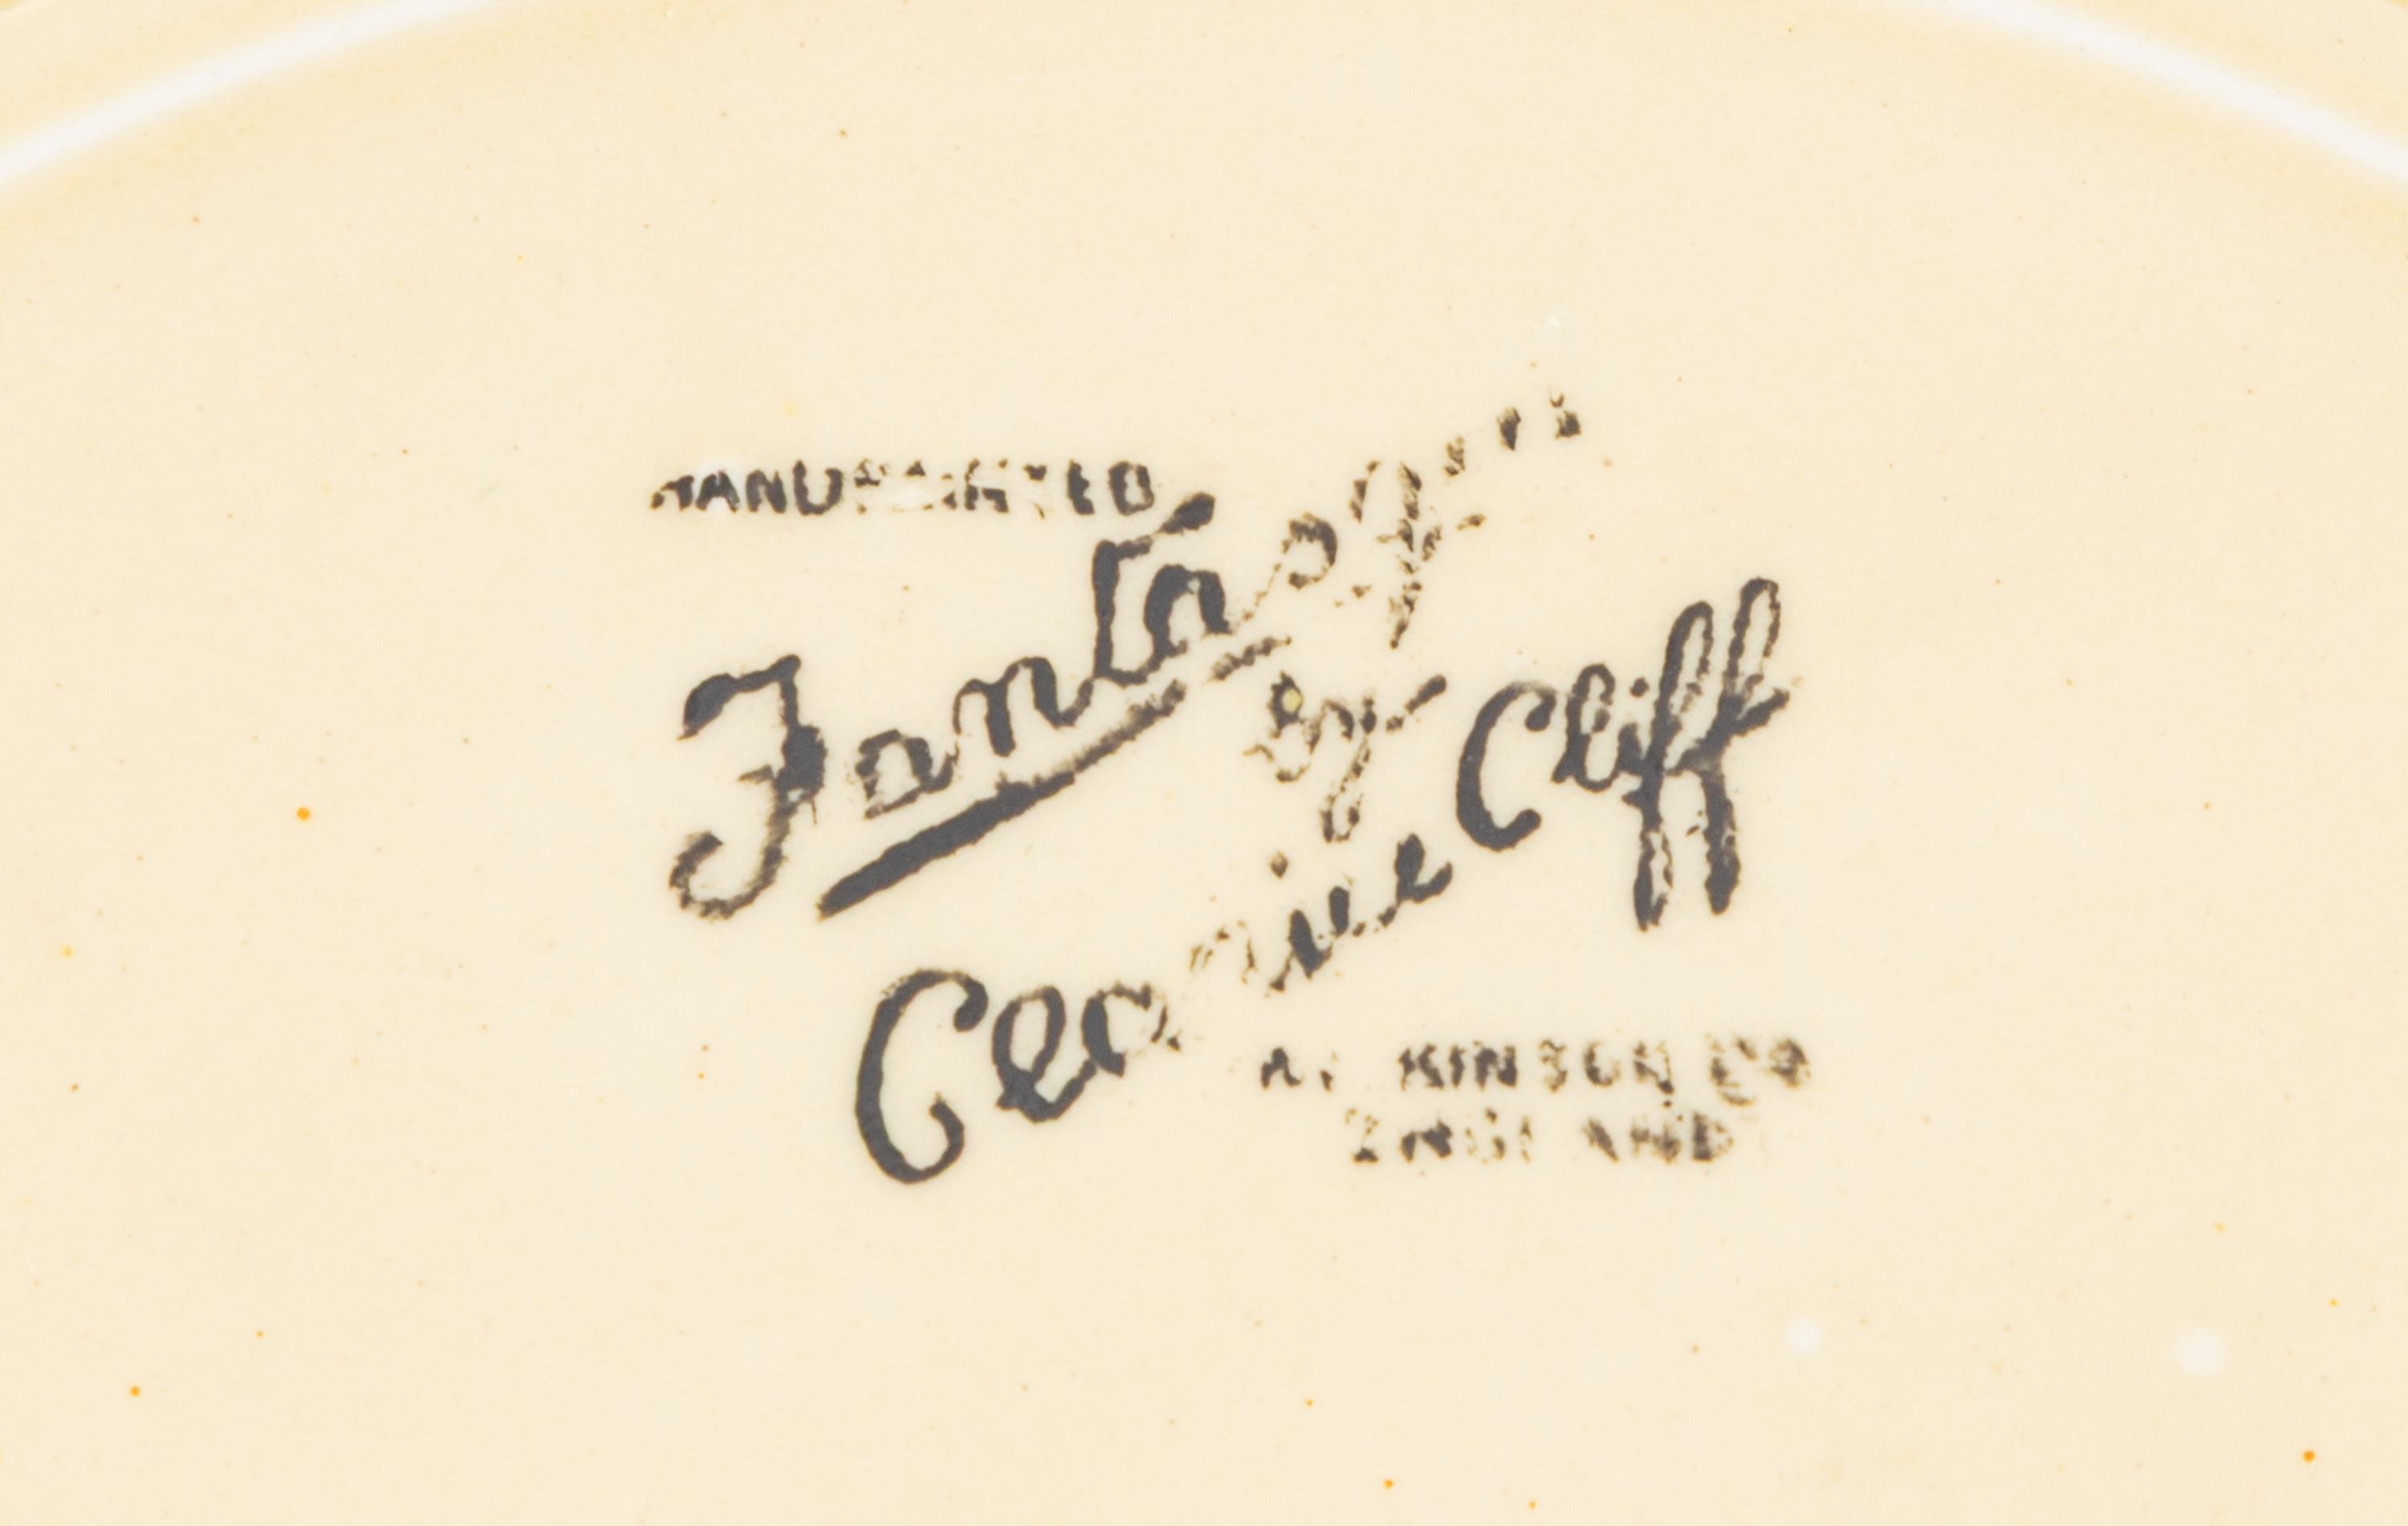 HANDPAINTED
Fantasque
by
Clarice Cliff
WILKINSON LTD
ENGLAND